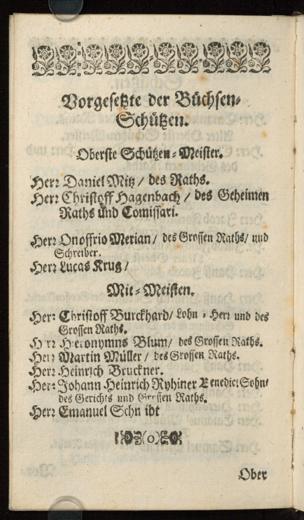 Vorgesetzte der Büchsen-
Schützen.
Oberste Schützen-Meister.
Herr Daniel Mitz / des Raths.
Herr Christoff Hagenbach / des Geheimen
Raths und Comissari.
Herr Onoffrio Merian / des Grossen Raths / und
Schreiber.
Herr Lucas Krug /
Mit-Meisten.
Herr Christoff Burckhard / Lohn-Herr und des
Grossen Raths.
Herr Hieronymus Blum / des Grossen Raths.
Herr Martin Müller / des Grossen Raths.
Herr Heinrich Bruckner.
Herr Johann Heinrich Ryhiner Benedict Sohn /
des Gerichts und Grossen Raths.
Herr Emanuel Schmidt
(o)
Ober